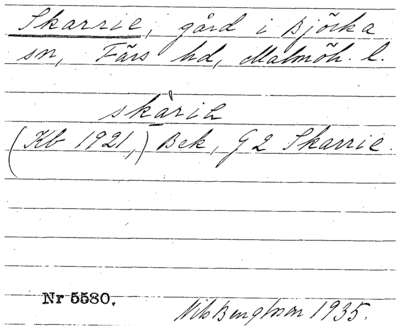 Skarrie, gård i Björka
sn, Färs hd, Malmöh. l.
skàriə
(Kb 1921,) Bek, G 2 Skarrie
Nr 5580.
Nils Bengtsson 1935.